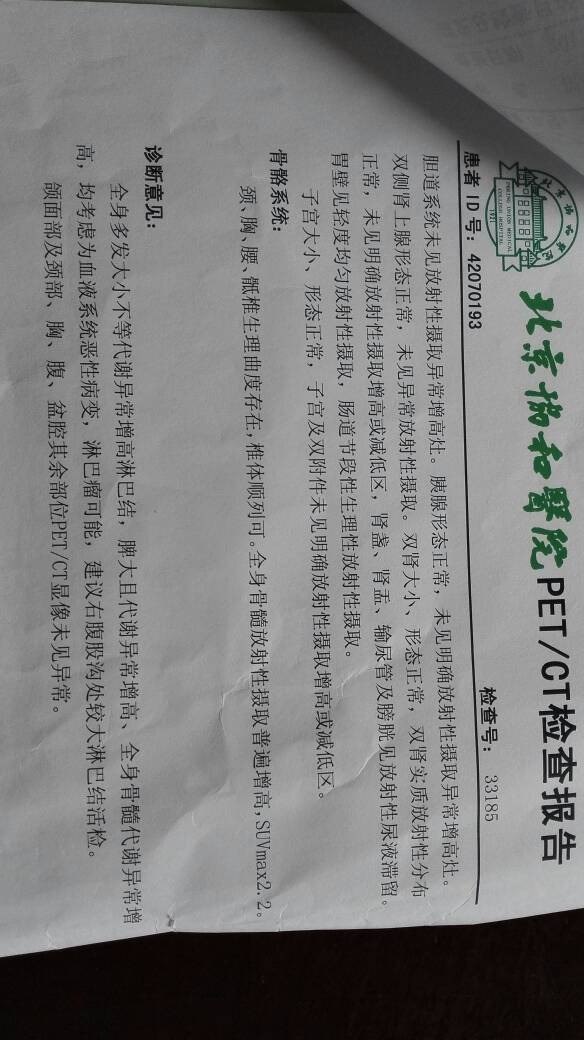 北京協和醫院PET/CT检查报告
PEKING UNION MEDICAL
COLLEGE HOSPITAL
1921
患者 ID 号: 42070193 检查号: 33185
胆道系统未见放射性摄取异常增高灶。胰腺形态正常，未见明确放射性摄取异常增高灶。
双侧肾上腺形态正常，未见异常放射性摄取。双肾大小、形态正常，双肾实质放射性分布
正常，未见明确放射性摄取增高或减低区，肾盏、肾盂、输尿管及膀胱见放射性尿液滞留。
胃壁见轻度均匀放射性摄取，肠道节段性生理性放射性摄取。
子宫大小、形态正常，子宫及双附件未见明确放射性摄取增高或减低区。
骨骼系统:
颈、胸、腰、骶椎生理曲度存在，椎体顺列可。全身骨髓放射性摄取普遍增高，SUVmax2.2。
诊断意见:
全身多发大小不等代谢异常增高淋巴结，脾大且代谢异常增高、全身骨髓代谢异常增
高，均考虑为血液系统恶性病变，淋巴瘤可能，建议右腹股沟处较大淋巴结活检。
颌面部及颈部、胸、腹、盆腔其余部位PET/CT显像未见异常。